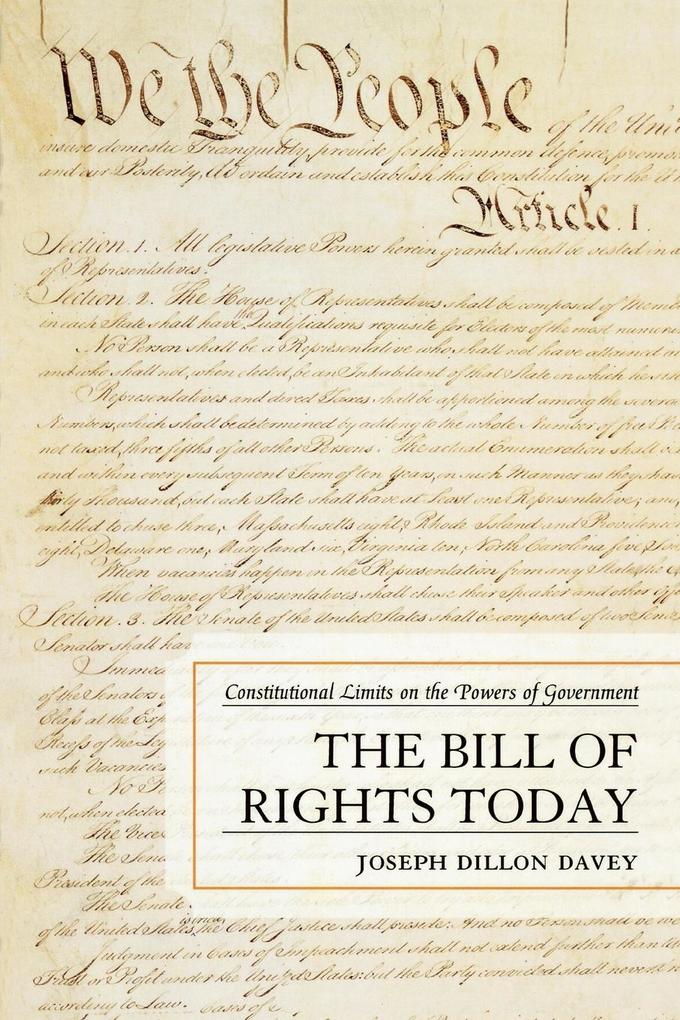 We the People of the Uni
insure domestic Tranquility, provide for the common defence, promo
and our Posterity, do ordain and establish this Constitution for the
Article. I.
Section. 1. All legislative Powers herein granted shall be vested in a
of Representatives.
Section. 2. The House of Representatives shall be composed of Memb
in each State shall have the Qualifications requisite for Electors of the most numero
No Person shall be a Representative who shall not have attained
and who shall not, when elected, be an Inhabitant of that State in which he
Representatives and direct Taxes shall be apportioned among the severa
Numbers, which shall be determined by adding to the whole Number of free
not taxed, three fifths of all other Persons. The actual Enumeration shall
and within every subsequent Term of ten Years, in such Manner as they sha
thirty Thousand, but each State shall have at Least one Representative; an
entitled to chuse three, Massachusetts eight, Rhode Island and Providence
eight, Delaware one, Maryland six, Virginia ten, North Carolina five, Sou
When vacancies happen in the Representation from any State, the
the House of Representatives shall chuse their Speaker and other Off
Section. 3. The Senate of the United States shall be composed of two Sena
Senator shall have
Immed
of the Senators
Class at the Exp
Recess of the Leg
such Vacancies
No
not, when elected
The Vice
The Sena
President of the
The Senate
of the United States is tried, the Chief Justice shall preside: And no Person shall be
Judgment in Cases of Impeachment shall not extend further than
Trust or Profit under the United States: but the Party convicted shall never
according to Law.
Constitutional Limits on the Powers of Government
THE BILL OF
RIGHTS TODAY
JOSEPH DILLON DAVEY